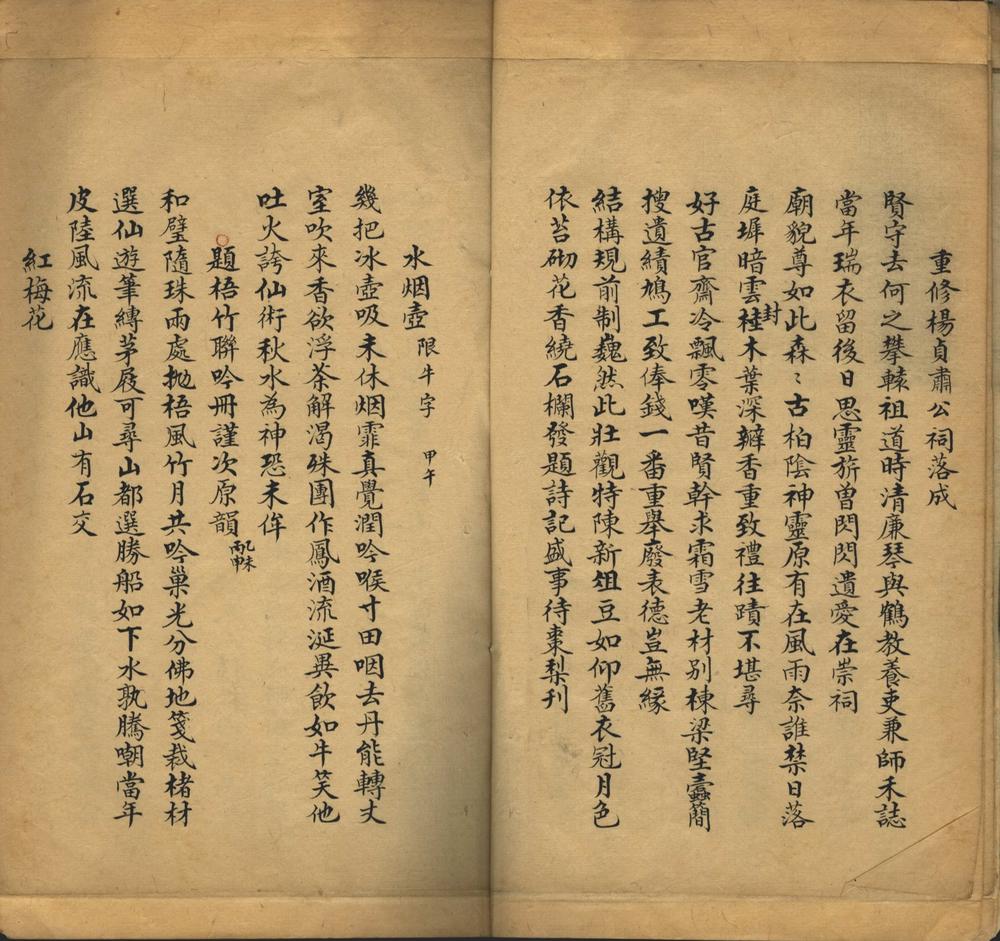 重修楊貞肅公祠落成
賢守去何之攀轅祖道時清廉琴與鶴教養吏兼師禾誌
當年瑞衣留後日思靈旂曾閃閃遺愛在崇祠
廟貌尊如此森〻古柏陰神靈原有在風雨奈誰禁日落
庭墀暗雲封桂木葉深瓣香重致禮往蹟不堪尋
好古官齋冷飄零嘆昔賢幹求霜雪老材別棟梁堅蠹簡
搜遺績鳩工致俸錢一番重舉廢表德豈無緣
結構規前制巍然此壯觀特陳新俎豆如仰舊衣冠月色
依苔砌花香繞石欄發題詩記盛事待棗梨刊
水烟壺 限牛字 甲午
幾把冰壺吸未休烟霏真覺潤吟喉寸田咽去丹能轉丈
室吹來香欲浮茶解渴殊團作鳳酒流涎異飲如牛笑他
吐火誇仙術秋水為神恐未侔
題梧竹聯吟冊謹次原韻 乙未丙申
和璧隨珠雨處拋梧風竹月共吟巢光分佛地箋裁楮材
選仙遊筆縛茅屐可尋山都選勝船如下水孰騰嘲當年
皮陸風流在應識他山有石交
紅梅花